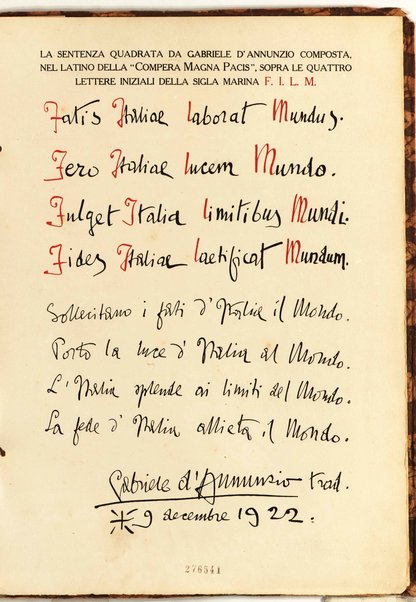 LA SENTENZA QUADRATA DA GABRIELE D'ANNUNZIO COMPOSTA,
NEL LATINO DELLA "COMPERA MAGNA PACIS", SOPRA LE QUATTRO
LETTERE INIZIALI DELLA SIGLA MARINA F. I. L. M.
Fatis Italiae laborat Mundus.
Fero Italiae lucem Mundo.
Fulget Italia limitibus Mundi.
Fides Italiae laetificat Mundum.
Sollecitano i fati d'Italia il Mondo.
Porto la luce d'Italia al Mondo.
L'Italia splende ai limiti del Mondo.
La fede d'Italia allieta il Mondo.
Gabriele d'Annunzio trad.
9 decembre 1922.
276541